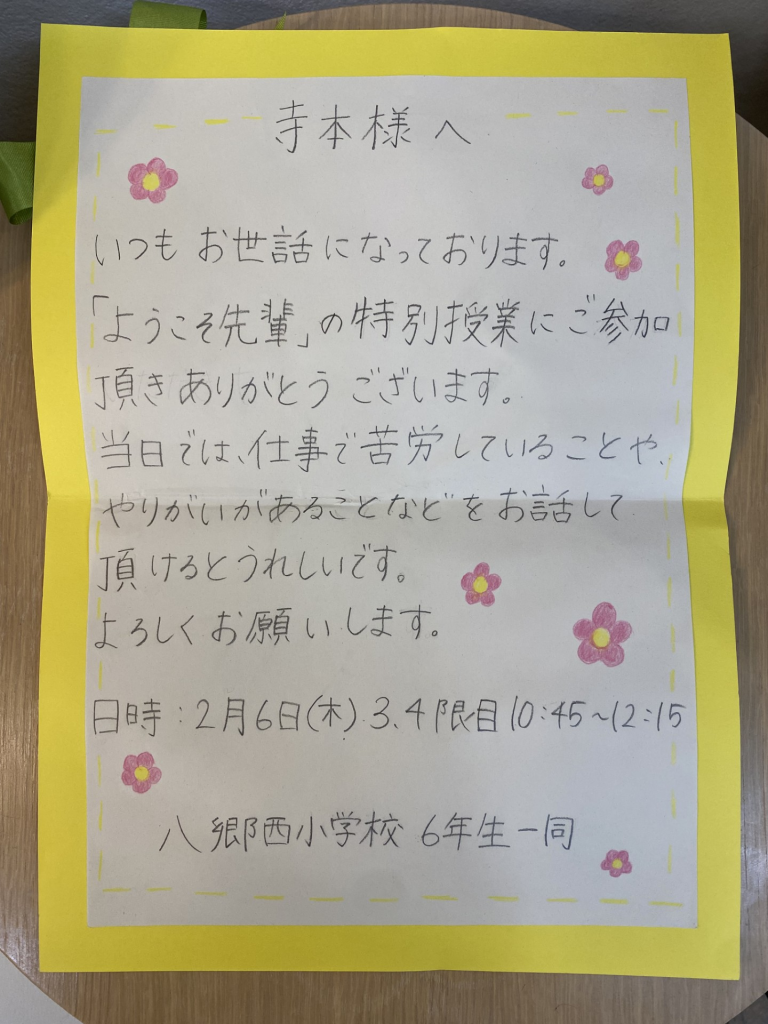 寺本様へ
いつもお世話になっております。
「ようこそ先輩」の特別授業にご参加
頂きありがとうございます。
当日では、仕事で苦労していることや、
やりがいがあることなどをお話して
頂けるとうれしいです。
よろしくお願いします。
日時:2月6日(木)3、4限目10:45~12:15
八郷西小学校 6年生一同